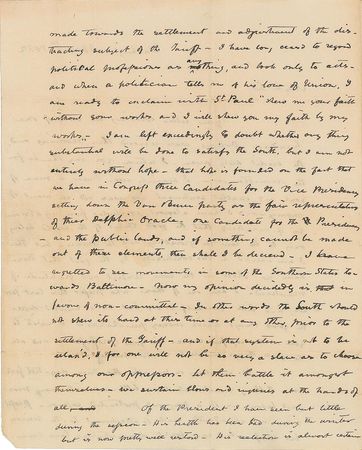 made towards the settlement and adjustment of the dis-
tracting subject of the Tariff - I have long ceased to regard
political professions as any thing, and look only to acts -
and when a politician tells me of his love of Union, I
am ready to exclaim with St Paul "shew me your faith
without your works and I will shew you my faith by my
works - I am left exceedingly to doubt whether any thing
substantial will be done to satisfy the South, but I am not
entirely without hope - that hope is founded on the fact that
we have in Congress three Candidates for the Vice Presidency
setting down the Van Buren party as the fair representatives
of their Delphic Oracle, one Candidate for the Presidency
- and the public lands, and if something cannot be made
out of these elements, then shall I be deceived - I have
regretted to see movements in some of the Southern States to-
wards Baltimore - now my opinion decidedly is in
favour of non-committal - In other words the South should
not shew its hand at this time or at any other, prior to the
settlement of the Tariff - and if that system is not to be
relaxd, I for one will not be so very a slave as to choose
among our oppressors - let them battle it amongst
themselves - we sustain blows and injuries at the hands of
all - Of the President I have seen but little
during the session - His health has been bad during the winter
but is now pretty well restord - His reelection is almost certain